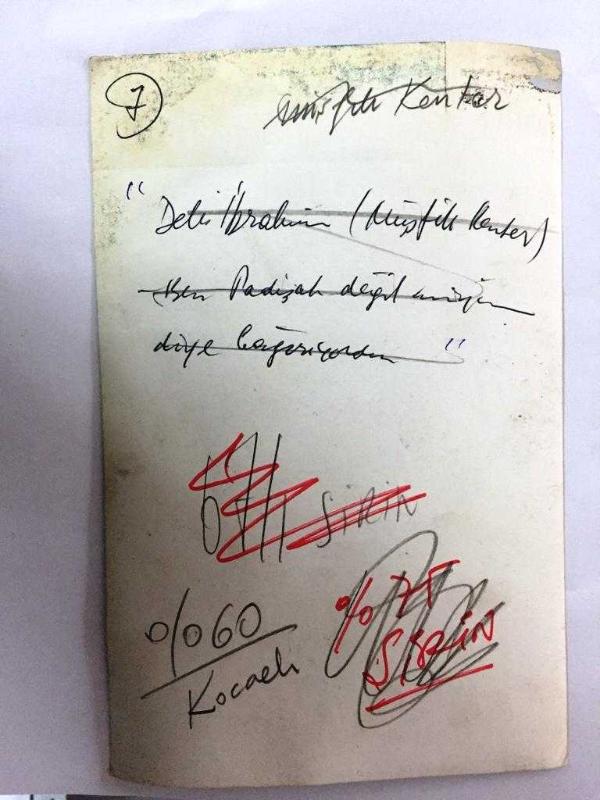 7
Müşfik Kenter
" Deli İbrahim (Müşfik Kenter)
Ben Padişah değil miyim
diye bağırıyordu "
SİRİN
%60
Kocaeli
% 75
SİRİN